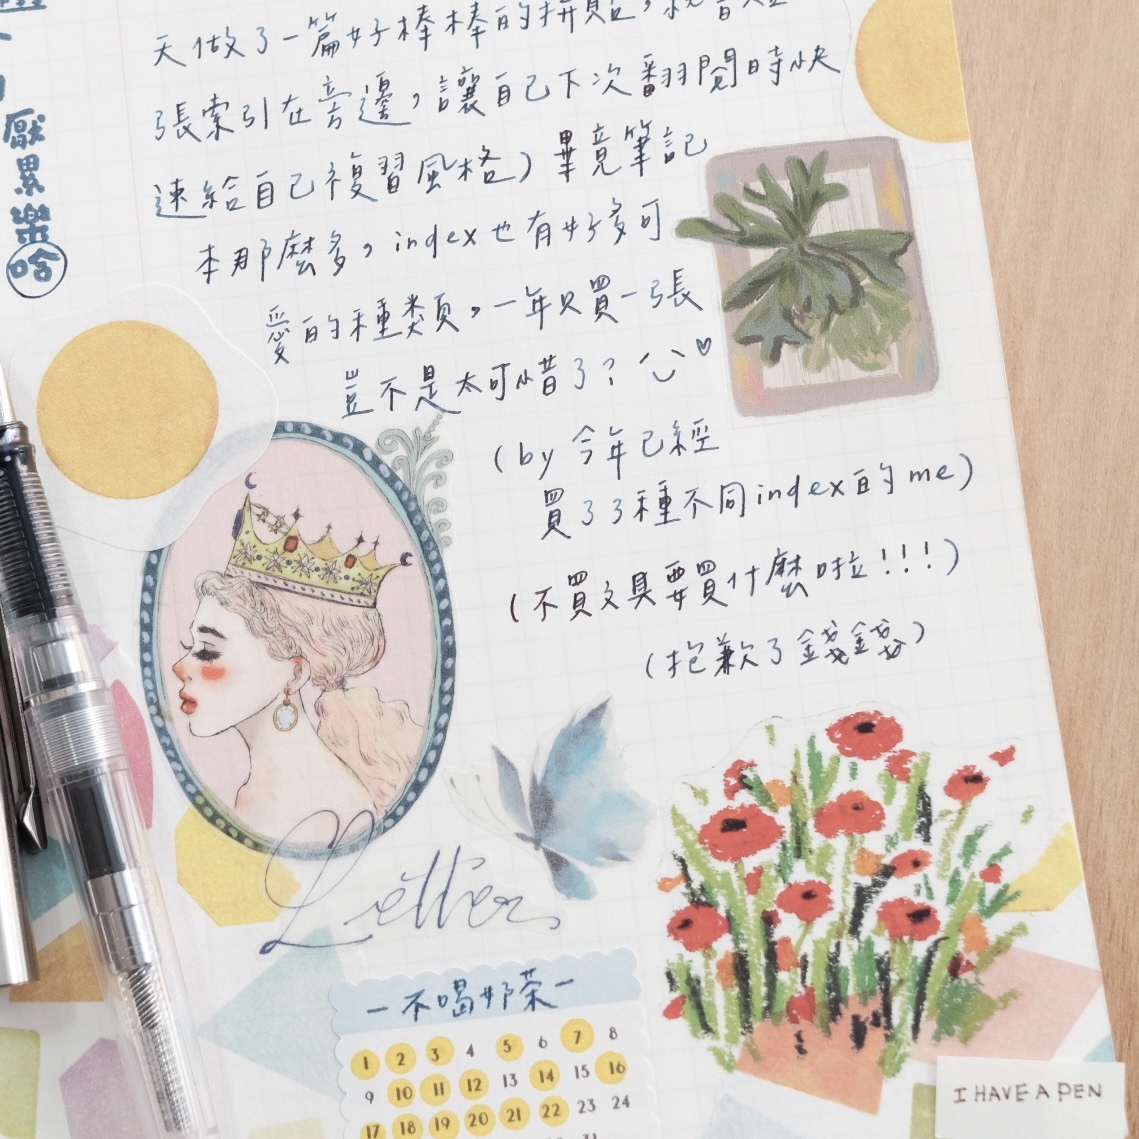 天做了一篇好棒棒的拼貼，就
張索引在旁邊，讓自己下次翻閱時快
速給自己複習風格）畢竟筆記
本那麼多，index也有好多可
愛的種類，一年只買一張
豈不是太可惜了？
(by 今年已經
買了3種不同index的me)
(不買文具要買什麼啦!!!)
(抱歉了錢錢)
厭
累
樂
啥
Letter
一不喝奶茶一
1 2 3 4 5 6 7 8
9 10 11 12 13 14 15 16
17 18 19 20 21 22 23 24
31
I HAVE A PEN